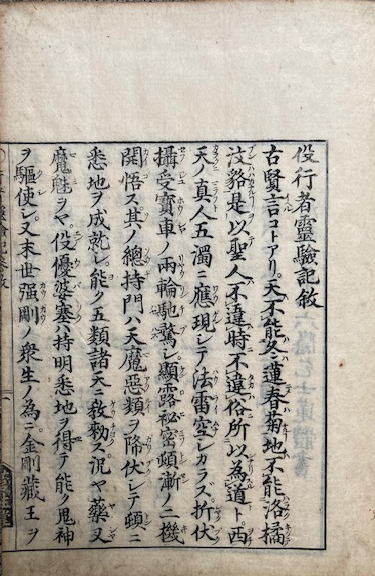 役行者靈驗記敘
古賢言コトアリ天不能冬蓮春菊地不能洛橘
汶貉是以聖人不違時不違俗所以為道ト西
天ノ真人五濁ニ應現シテ法雷空シカラス折伏
攝受寶車ノ兩輪馳驚シ顯露祕密頓漸ノ二機
開悟ス其ノ總持門ハ天魔惡類ヲ降伏シテ頓ニ
悉地ヲ成就シ能ク五類諸天ニ敎勅ス況ヤ藥叉
魔魅ヲヤ役優婆塞ハ持明悉地ヲ得テ能ク鬼神
ヲ驅使シ又末世强剛ノ衆生ノ為ニ金剛藏王ヲ